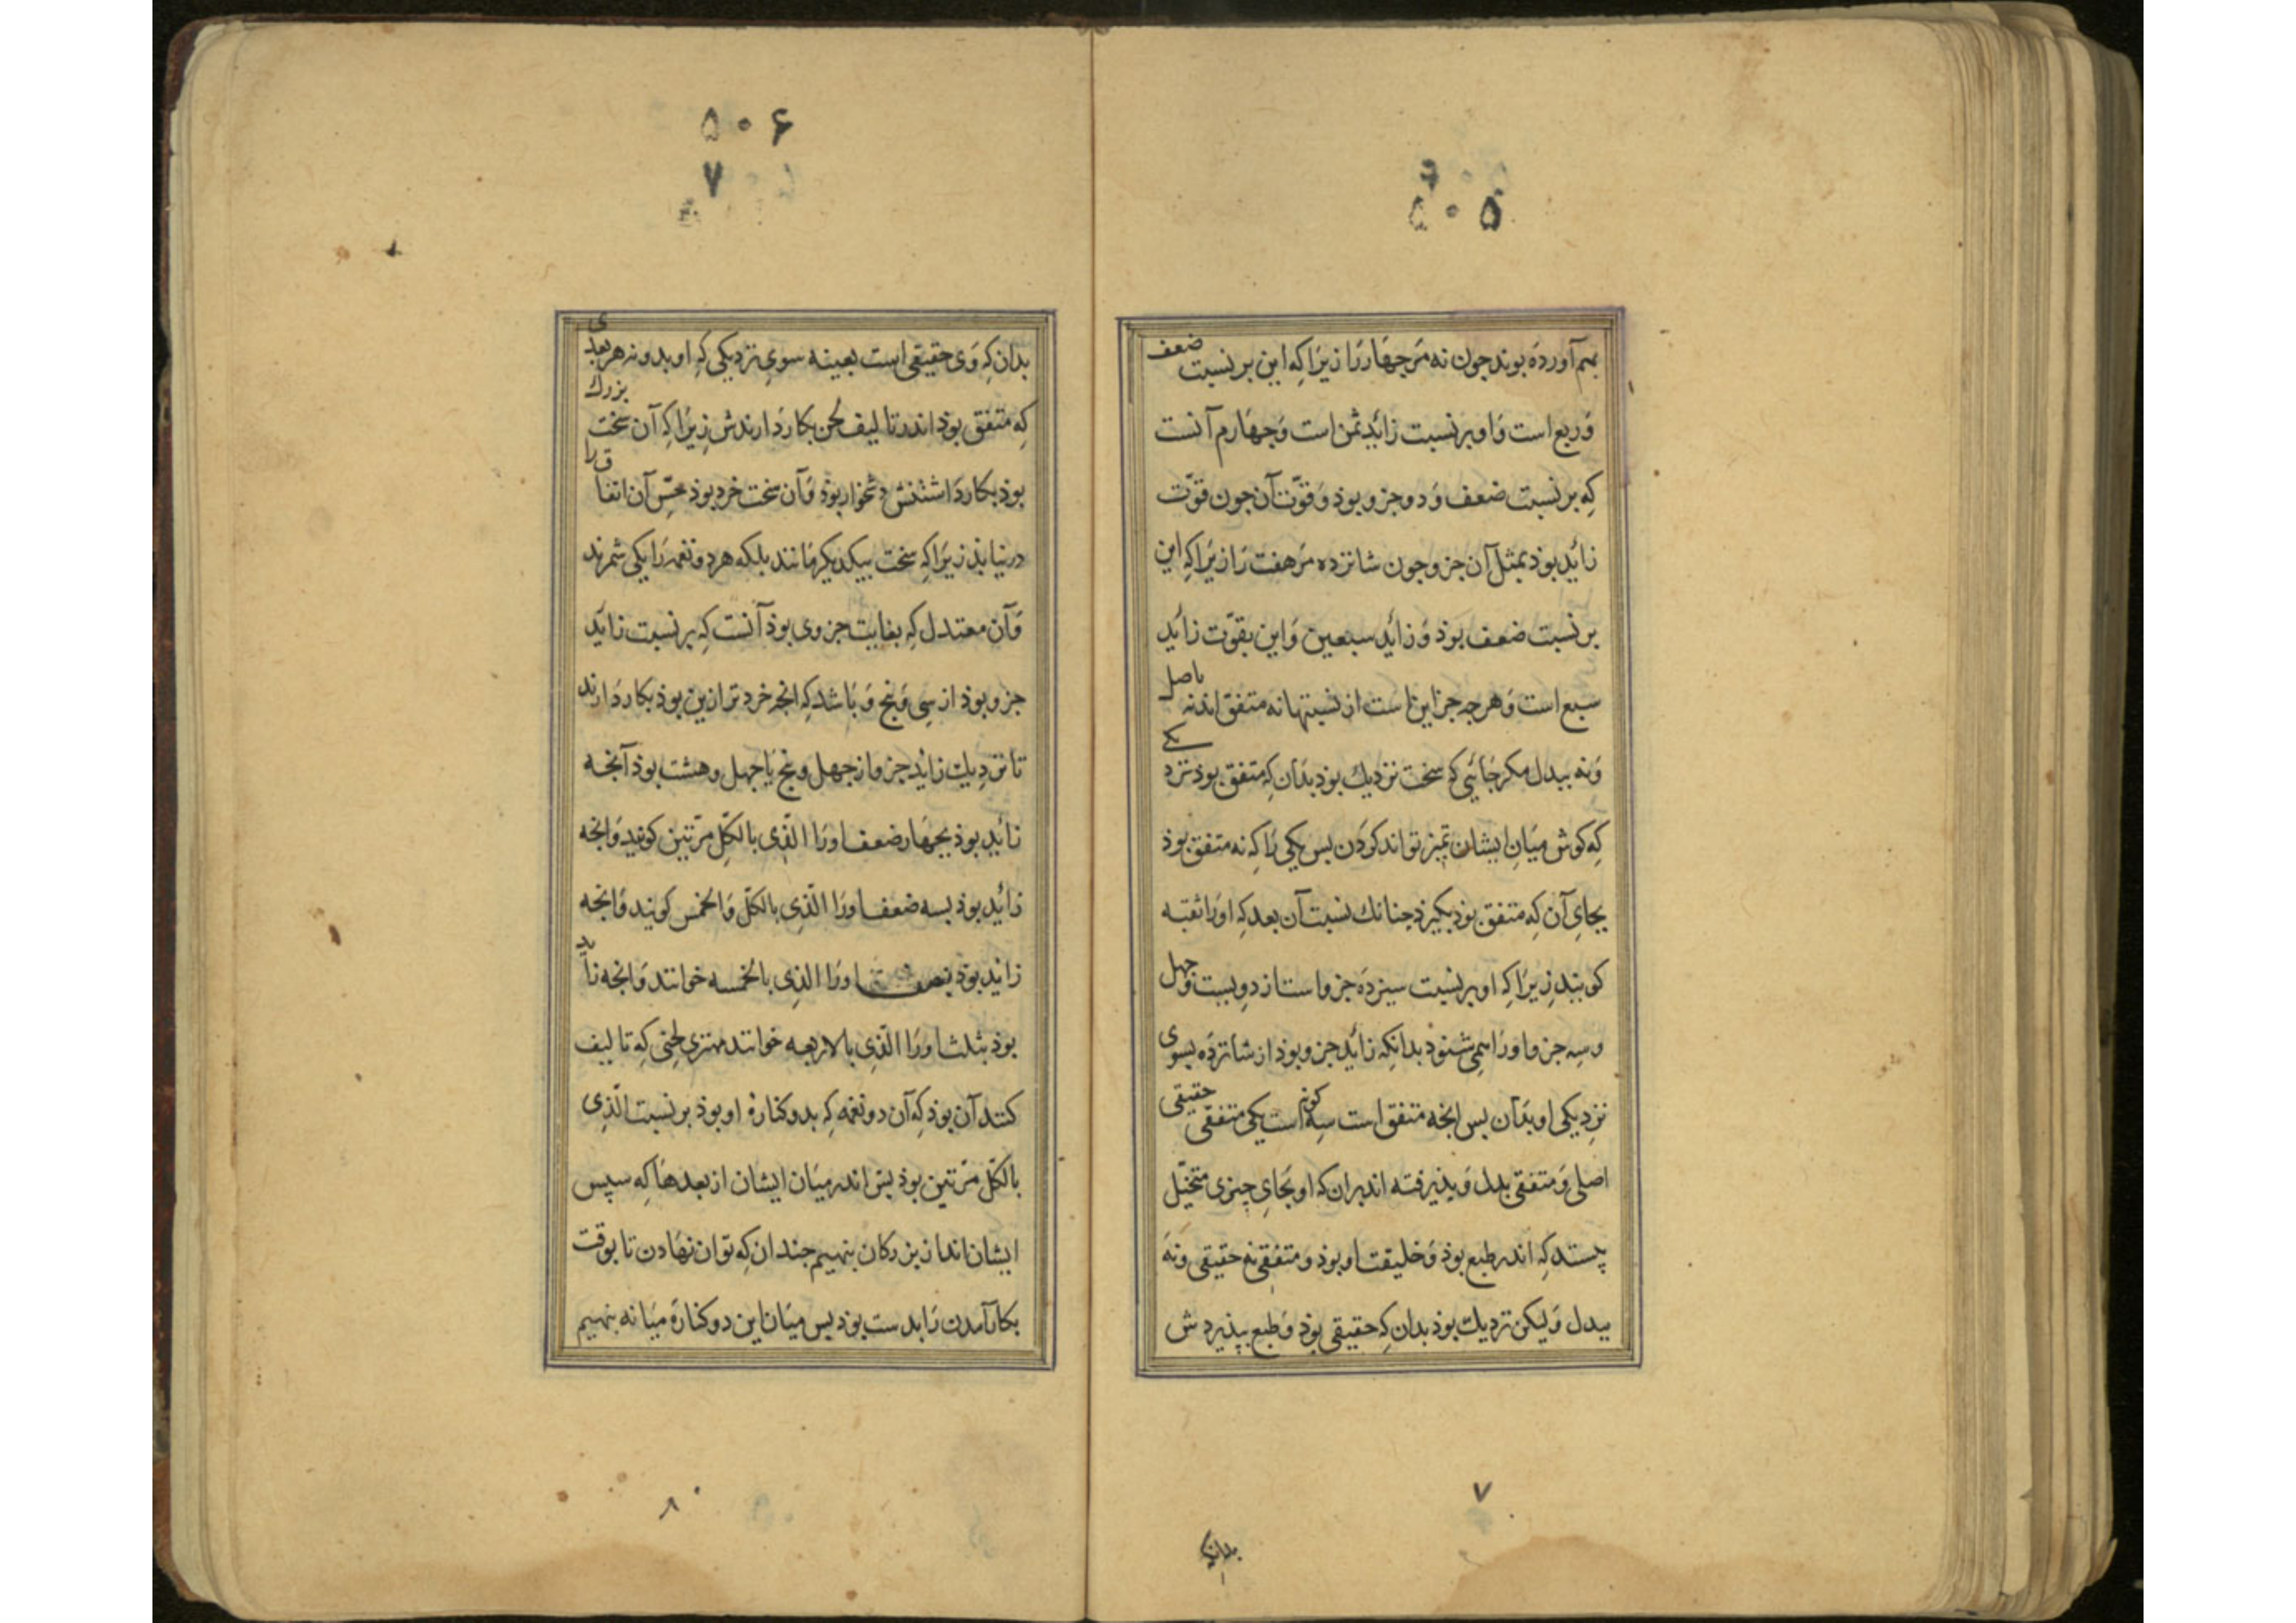 ۵۰۵
بهم آورده بوند جون نه مر جهار را زیرا که این بر نسبت ضعف
و ربع است و او بر نسبت زائد ثمن است و جهارم آنست
که بر نسبت ضعف و دو جزو بوذ و قوّت آن جون قوّت
زائد بوذ بمثل آن جزو جون شانزده مر هفت را زیرا که این
بر نسبت ضعف بوذ و زائد سبعین و این بقوّت زائد
سبع است و هرجه جز اینها ست از نسبتها نه متفق اند نه باصل
و نه ببدل مکر جائی که سخت نزدیك بوذ بدان که متفق بوذ نزد یکی
که کوش میان ایشان تمیز تواند کردن بس یکی را که نه متفق بوذ
بجای آن که متفق بوذ بکیرذ جنانك نسبت آن بعد که او را ثقبه
کویند زیرا که او بر نسبت سیزده جزو است از دویست و جهل
و سه جزو او را همی شنوذ بدانکه زائد جزو بوذ از شانزده بسوی
نزدیکی او بدان بس انجه متفق است سه کونه است یکی متفقی حقیقی
اصلی و متفقی بدل و پذیرفته اند بران که او بجای چیزی متخیّل
پستد که اندر طبع بوذ و خلیقت او بوذ و متفقی نه حقیقی و نه
ببدل و لیکن نزدیك بوذ بدان که حقیقی بوذ و طبع بپذیردش
۷
بدان که
۵۰۶
۷
بدان که وی حقیقی است بعینه سوی نزدیکی که او بدو نه هر بعدی
که متفق بوذ اندر تالیف لحن بکار دارندش زیرا که آن سخت بزرك
بوذ بکار داشتنش دشخوار بوذ و آن سخت خرد بوذ حسّ آن اتفاق را
در نیابذ زیرا که سخت بیکدیکر مانند بلکه هر دو نغمه را یکی شمرند
و آن معتدل که بغایت جزوی بوذ آنست که بر نسبت زائد
جزو بوذ از سی و پنج و باشد که انجه خردتر ازین بوذ بکار دارند
تا نزدیك زائد جزو از جهل و پنج یا جهل و هشت بوذ آنجه
زائد بوذ بجهار ضعف او را الّذی بالکلّ مرّتین کویند و انجه
زائد بوذ بسه ضعف او را الّذی بالکلّ و الخمس کویند و انجه
زائد بوذ بنصف او را الذی بالخمسه خوانند و انجه زاید
بوذ بثلث او را الّذی بالاربعه خوانند مهتری لحنی که تالیف
کنند آن بوذ که آن دو نغمه که بدو کنارهٔ او بوذ بر نسبت الّذی
بالکلّ مرّتین بوذ پس اندر میان ایشان از بعدها که سپس
ایشان اند از بزرکان بنهیم جندان که توان نهادن تا بوقت
بکار آمدن را بدست بوذ پس میان این دو کناره میانه بنهیم
۸